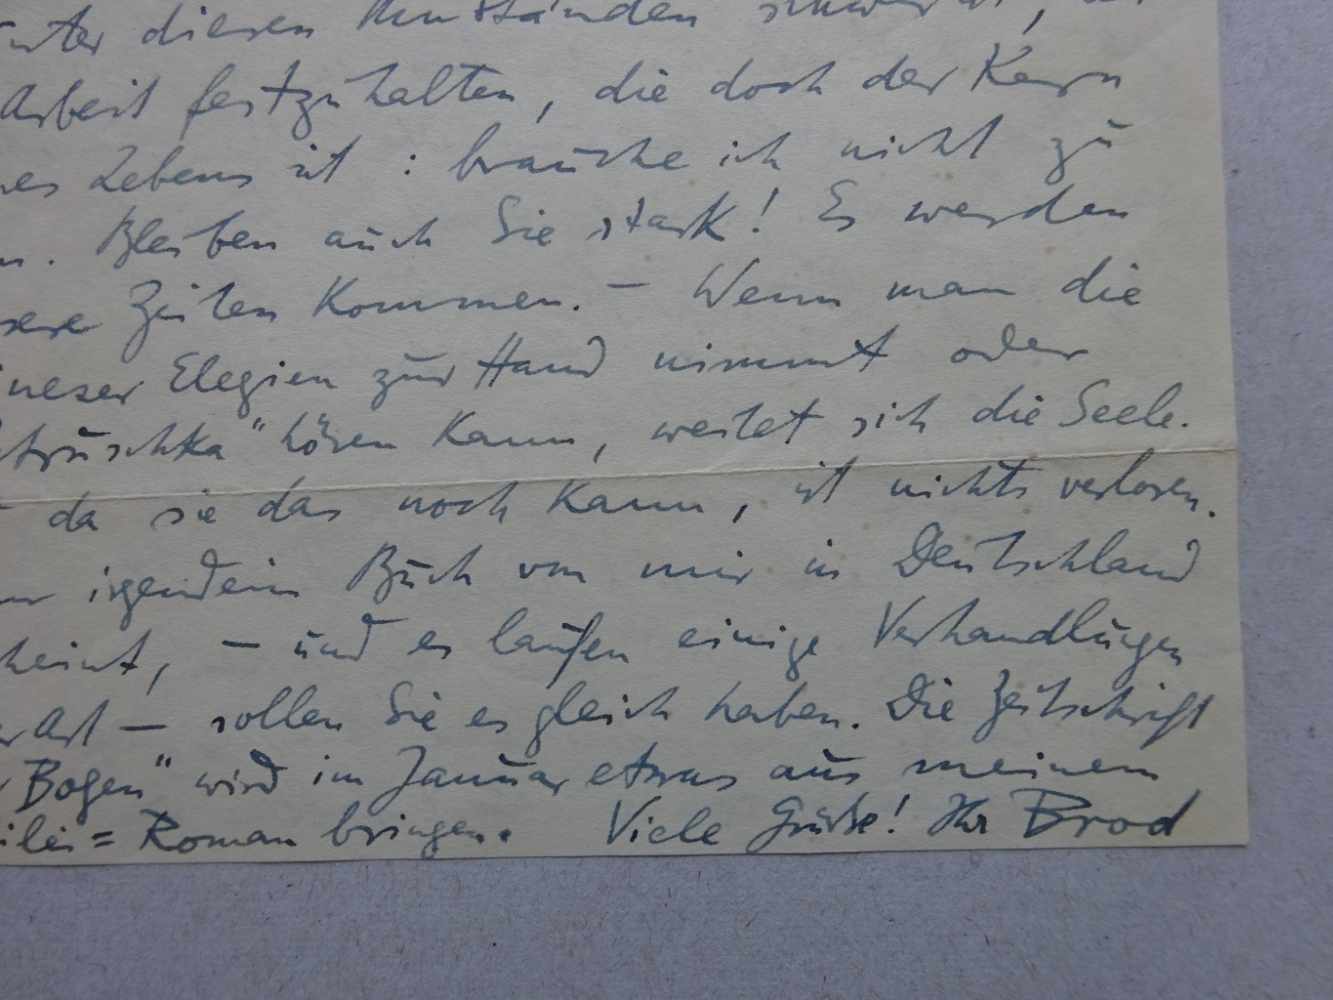 unter diesen Umständen schwer ist,
Arbeit festzuhalten, die doch der Kern
nes Lebens ist : brauche ich nicht zu
n. Bleiben auch Sie stark! Es werden
sere Zeiten kommen. — Wenn man die
ineser Elegien zur Hand nimmt oder
truschka" hören kann, weitet sich die Seele.
da sie das noch kann, ist nichts verloren.
irgendein Buch von mir in Deutschland
heint, — und es laufen einige Verhandlungen
r Art — sollen Sie es gleich haben. Die Zeitschrift
r Bogen" wird im Januar etwas aus meinem
ilei=Roman bringen. Viele Grüße! Ihr Brod